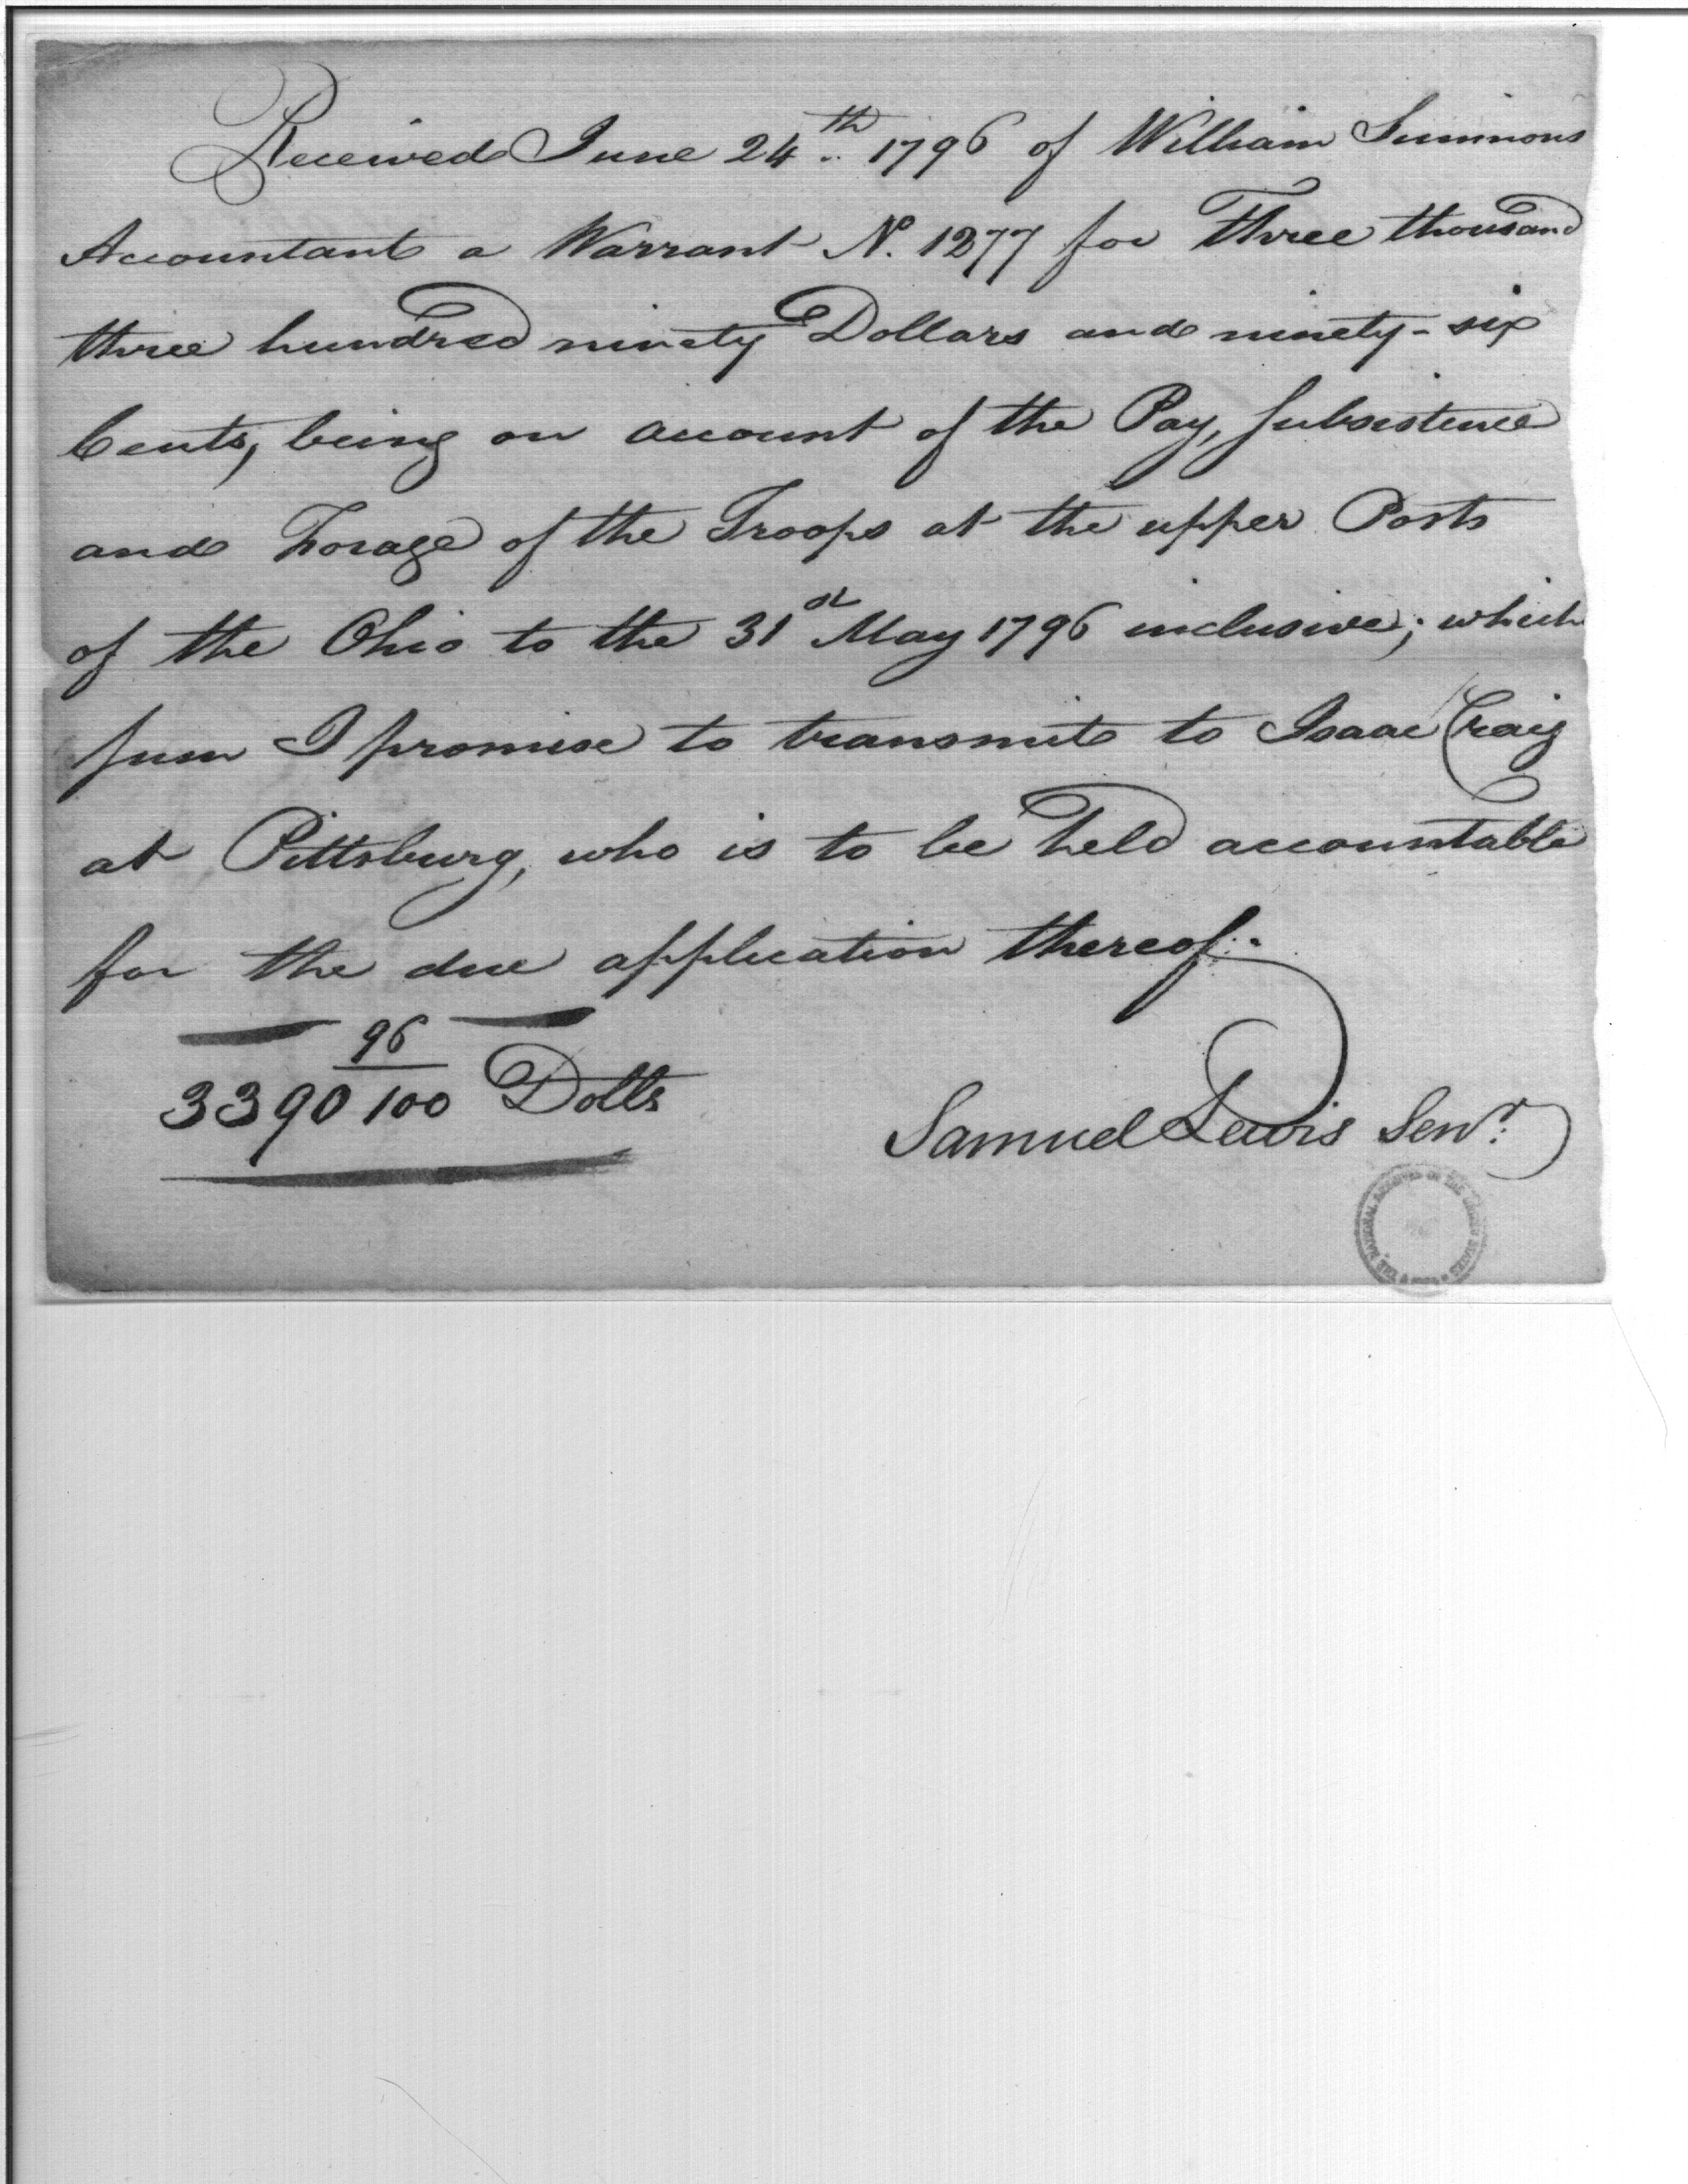 Received June 24th 1796 of William Simmons
Accountant a Warrant No. 1277 for Three thousand
three hundred ninety Dollars and ninety-six
Cents, being on account of the Pay, Subsistence
and Forage of the Troops at the upper Posts
of the Ohio to the 31st May 1796 inclusive; which
sum I promise to transmit to Isaac Craig
at Pittsburg, who is to be held accountable
for the due application thereof.
96
3390 100 Dolls
Samuel Lewis Senr.
THE NATIONAL ARCHIVES OF THE UNITED STATES